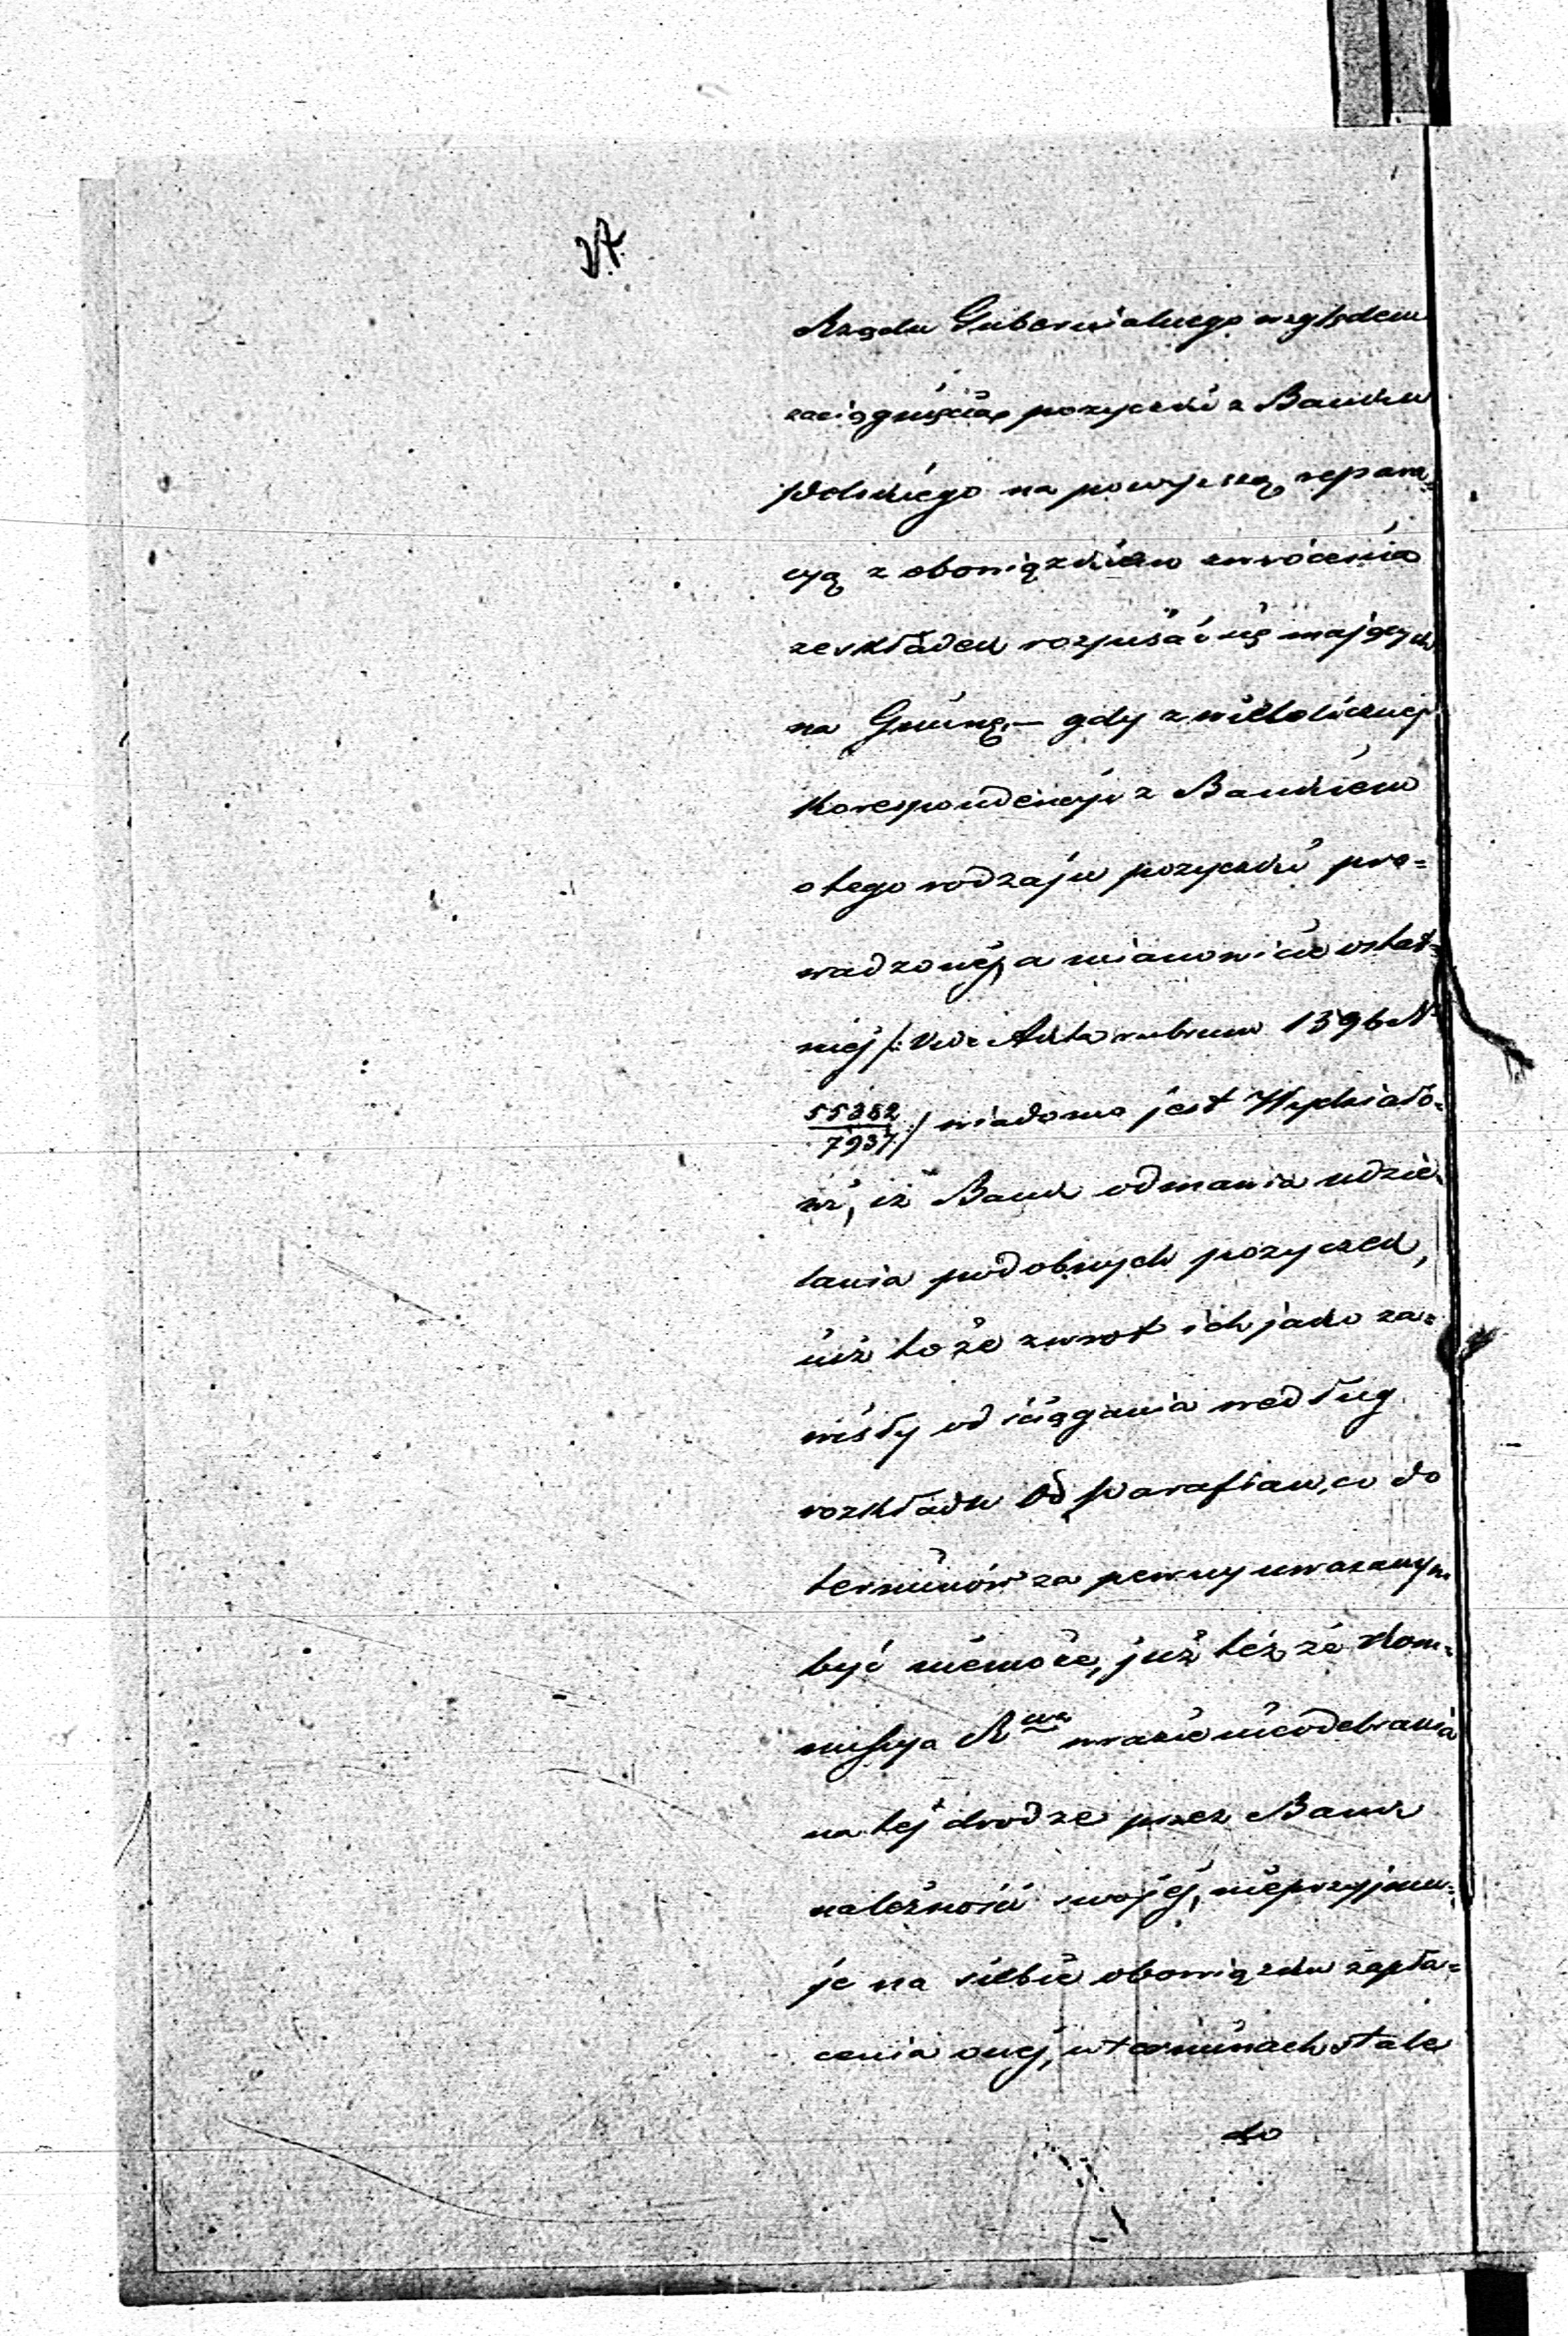 Rządu Gubernialnego względem
zaciągnięcia pożyczki z Banku
Polskiego na powyższą repara=
cyą z obowiązkiem zwrócenia
ze składek rozpisać się mających
na Gminę, — gdy z wielolicznej
Korespondencyi z Bankiem
o tego rodzaju pożyczki pro=
wadzonéj, a mianowicie ostat=
niéj /: vide Akta rubrum 1396 N
55382
7937 :/ wiadomo jest Wydziało=
wi, iż Bank odmawia udzie=
lania podobnych pożyczek,
już to że zwrot ich jako za=
wisły od ściągania według
rozkładu od parafian, co do
terminów za pewny uważanym
być niemoże, już też że Kom=
missya Rwa w razie nieodebrania
na téj drodze przez Bank
należności swojéj, nieprzyjmu=
je na siebie obowiązku zapła=
cenia onéj, w terminach stale
do